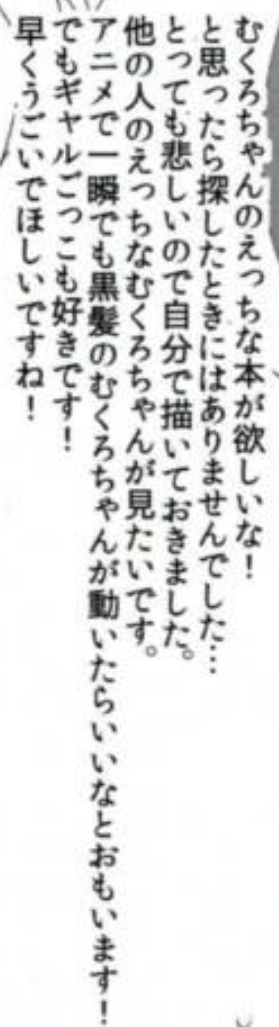 むくろちゃんのえっちな本が欲しいな！
と思ったら探したときにはありませんでした…
とっても悲しいので自分で描いておきました。
他の人のえっちなむくろちゃんが見たいです。
アニメで一瞬でも黒髪のむくろちゃんが動いたらいいなとおもいます！
でもギャルごっこも好きです！
早くうごいでほしいですね！